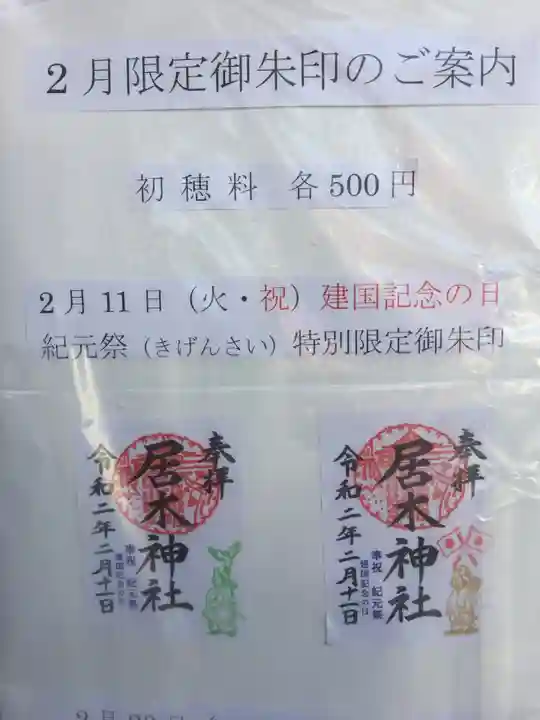 2月限定御朱印のご案内
初穂料 各500円
2月11日（火・祝）建国記念の日
紀元祭（きげんさい）特別限定御朱印
奉拝
居木神社
奉祝 紀元祭
建国記念の日
令和二年二月十一日
奉拝
居木神社
奉祝 紀元祭
建国記念の日
令和二年二月十一日